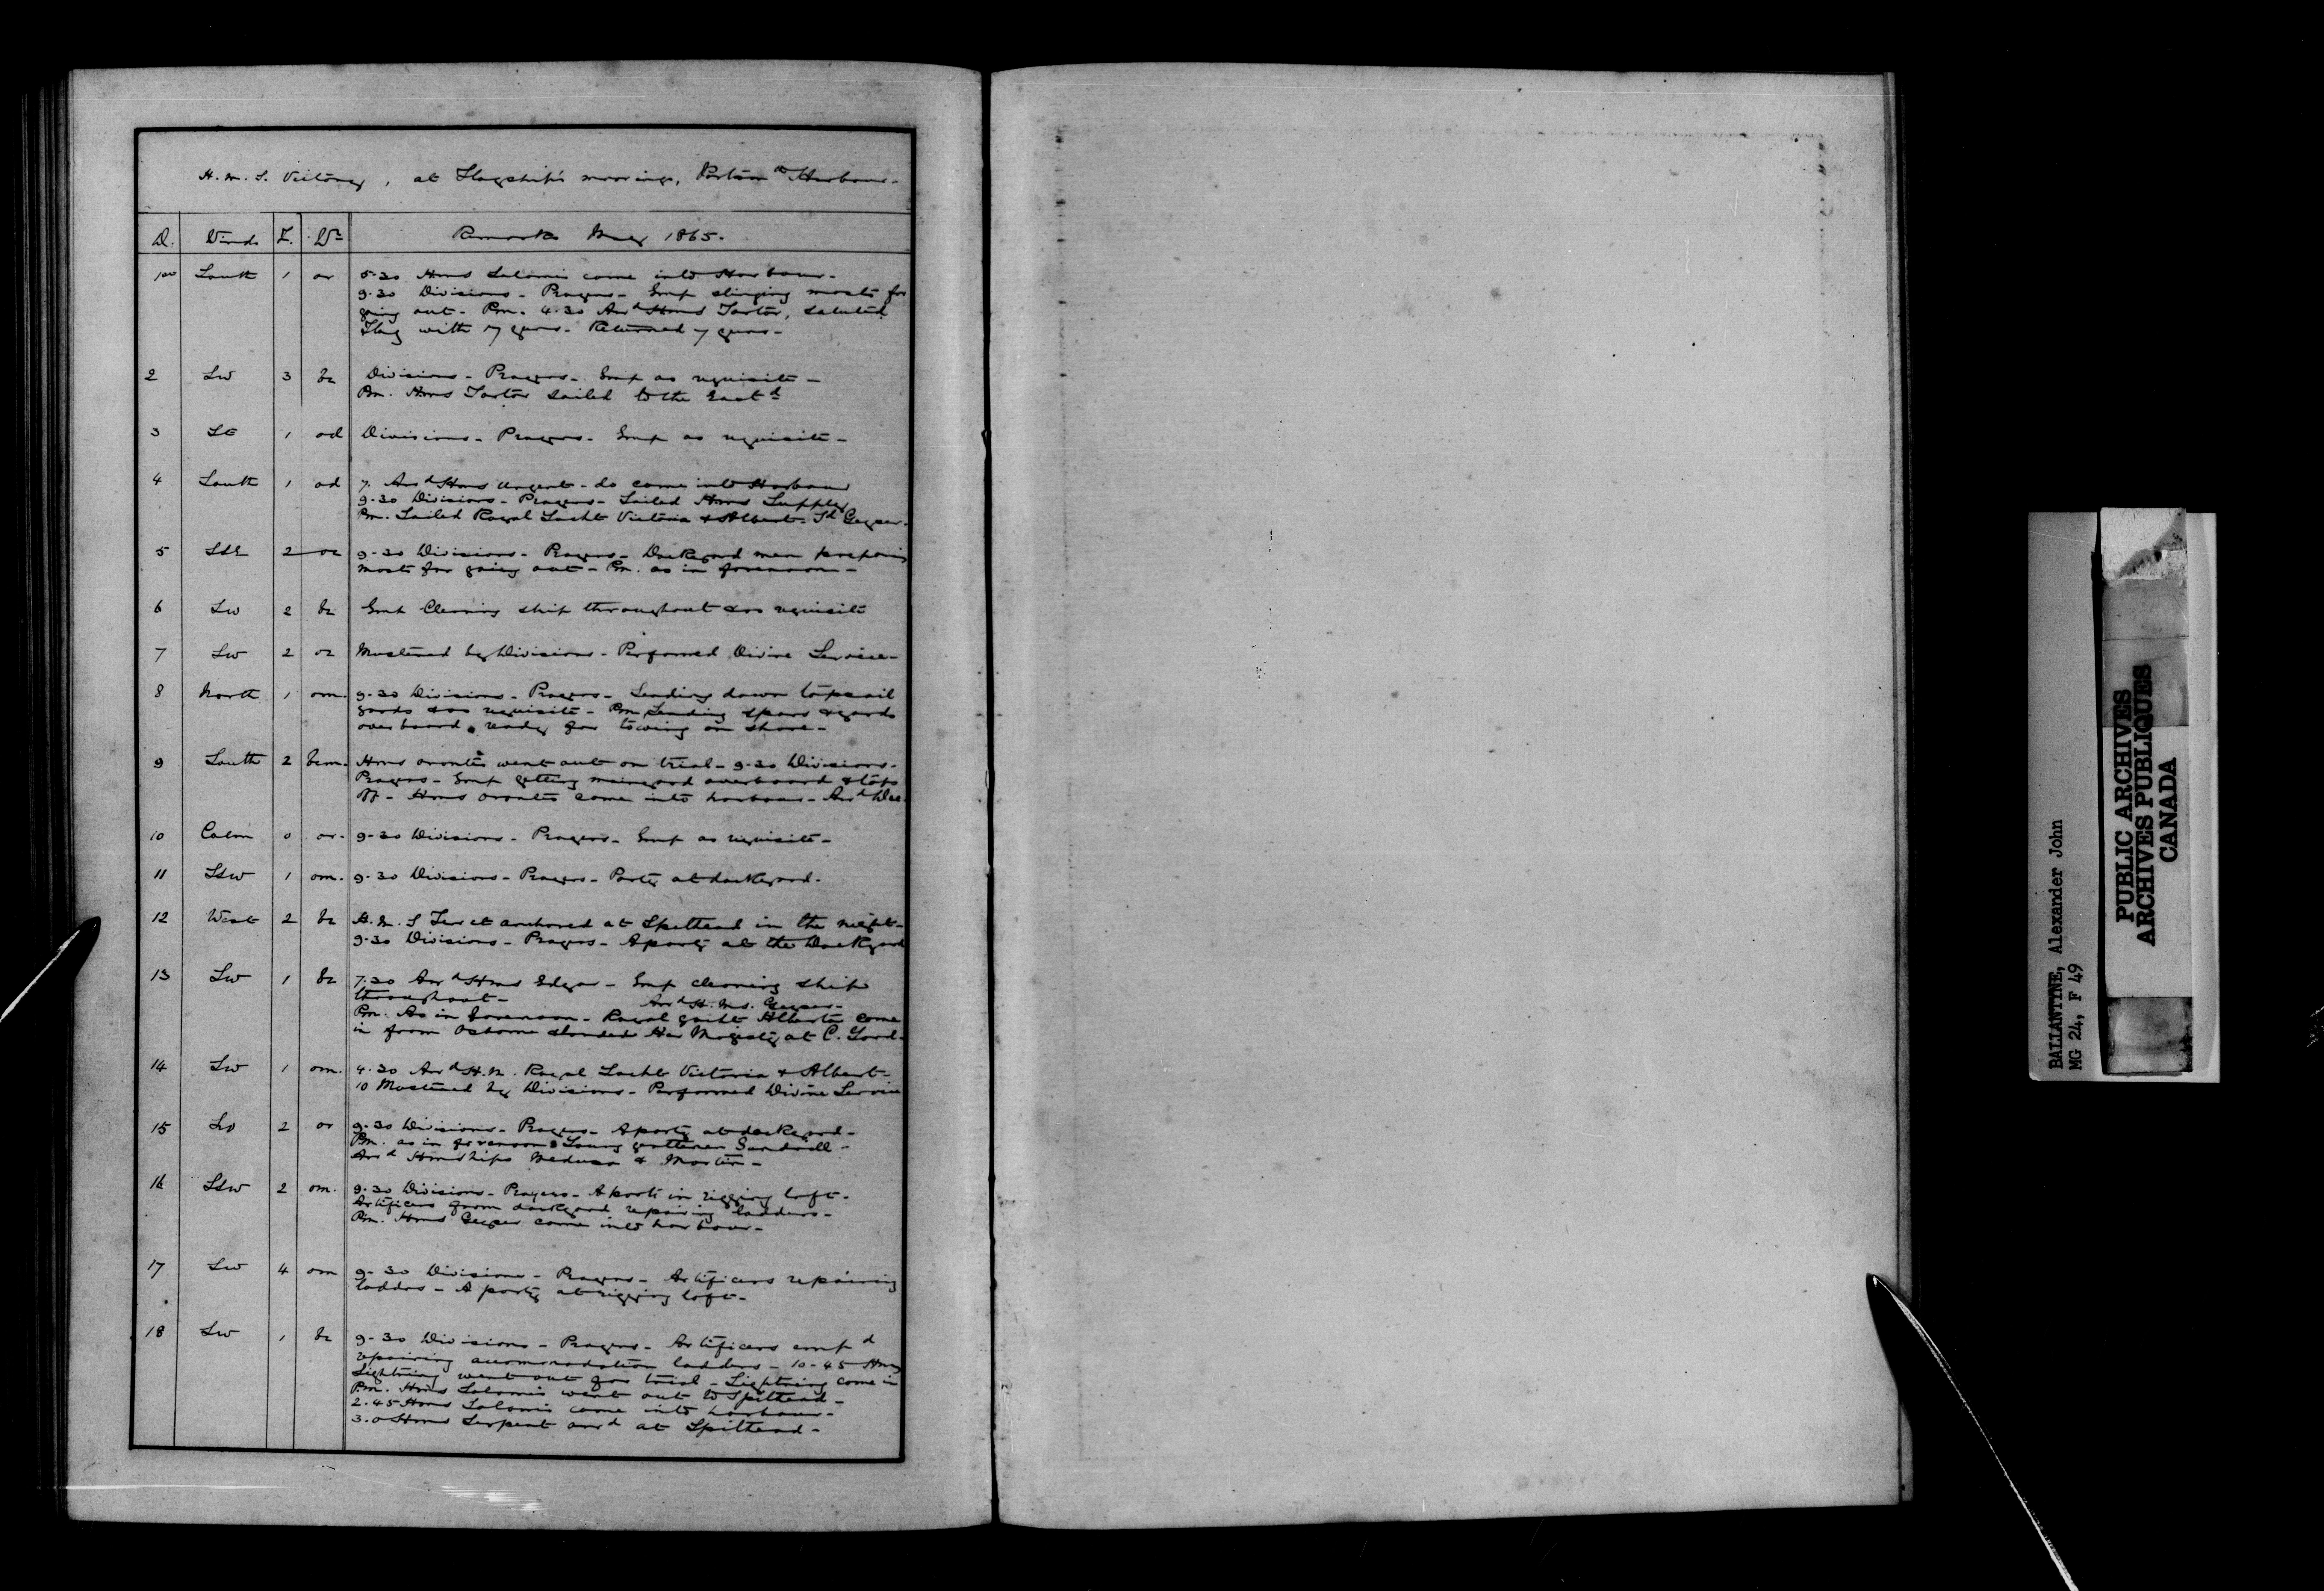 H.M.S. Victory, at Flagship's moorings, Portsmth Harbour.
D. Winds F. Wr Remarks May 1865.
1st South 1 or 5.30 Hms Salamis came into Harbour.
9.30 Divisions - Prayers - Emp slinging masts for
going out - Pm. 4.30 Arrd Hms Tartar, saluted
Flag with 17 guns - Returned 7 guns -
2 SW 3 bc Divisions - Prayers - Emp as requisite -
Pm. Hms Tartar sailed to the Eastd
3 SE 1 od Divisions - Prayers - Emp as requisite -
4 South 1 od 7. Arrd Hms Urgent - do came into Harbour
9.30 Divisions - Prayers - Sailed Hms Supply
Pm. Sailed Royal Yacht Victoria & Albert - Sd Geyser -
5 SSE 2 oc 9.30 Divisions - Prayers - Dockyard men preparing
masts for going out - Pm. as in forenoon -
6 SW 2 bc Emp Cleaning ship throughout & as requisite
7 SW 2 oc Mustered by Divisions - Performed Divine Service -
8 North 1 om. 9.30 Divisions - Prayers - Sending down topsail
yards & as requisite - Pm Sending spars & yards
overboard ready for towing on shore -
9 South 2 bcm. Hms Orontes went out on trial - 9.30 Divisions -
Prayers - Emp getting mainyard overboard & tops
off - Hms Orontes came into harbour - Arrd
10 Calm 0 or. 9.30 Divisions - Prayers - Emp as requisite -
11 SSW 1 om. 9.30 Divisions - Prayers - Party at dockyard.
12 West 2 bc H.M.S anchored at Spithead in the night -
9.30 Divisions - Prayers - A party at the Dockyard
13 SW 1 bc 7.30 Arrd Hms Edgar - Emp cleaning ship
throughout - Arrd H.Ms. Geyser -
Pm. As in Forenoon - Royal yacht Alberta came
in from Osborne & landed Her Majesty at C. Yard.
14 SW 1 om. 4.30 Arrd H.M. Royal Yacht Victoria & Albert -
10 Mustered by Divisions - Performed Divine Service
15 2 or 9.30 Divisions - Prayers - A party at dockyard -
Pm. as in forenoon & Young gentlemen Gundrill -
Arrd Hmships Medusa & Martin -
16 SSW 2 om. 9.30 Divisions - Prayers - A party in rigging loft -
Artificers from dockyard repairing ladders -
Pm. Hms Geyser came into harbour -
17 SW 4 om 9.30 Divisions - Prayers - Artificers repairing
ladders - A party at rigging loft -
18 SW 1 bc 9.30 Divisions - Prayers - Artificers empd
repairing accomodation ladders - 10.45 Hms
Lightning went out for trial - Lightning came in
Pm. Hms Salamis went out to Spithead -
2.45 Hms Salamis came into harbour -
3.0 Hms Serpent arrd at Spithead -
BALLANTINE, Alexander John
MG 24, F 49
PUBLIC ARCHIVES
ARCHIVES PUBLIQUES
CANADA